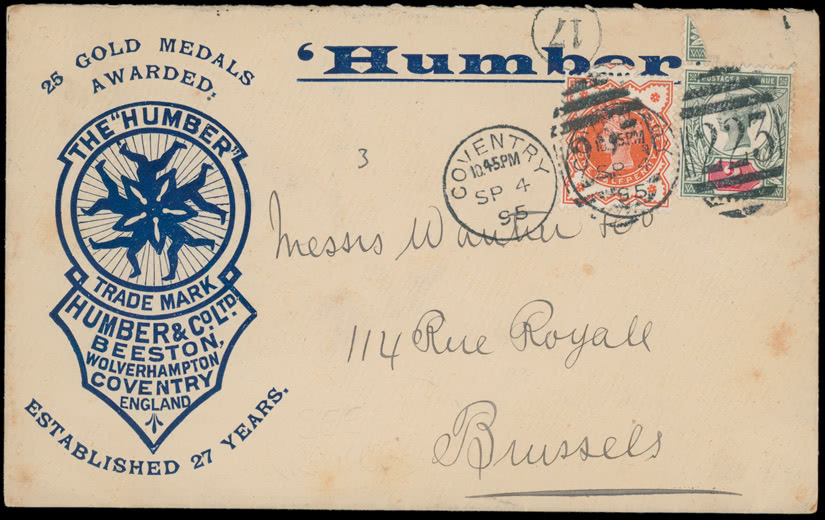 25 GOLD MEDALS
AWARDED.
'Humber
17
THE "HUMBER"
TRADE MARK
HUMBER & Co. LTD.
BEESTON,
WOLVERHAMPTON
COVENTRY
ENGLAND
ESTABLISHED 27 YEARS.
3
COVENTRY
10.45PM
SP 4
95
POSTAGE &
NUE
HALFPENNY
223
10.45PM
SP
95
Messrs
114 Rue Royale
Brussels